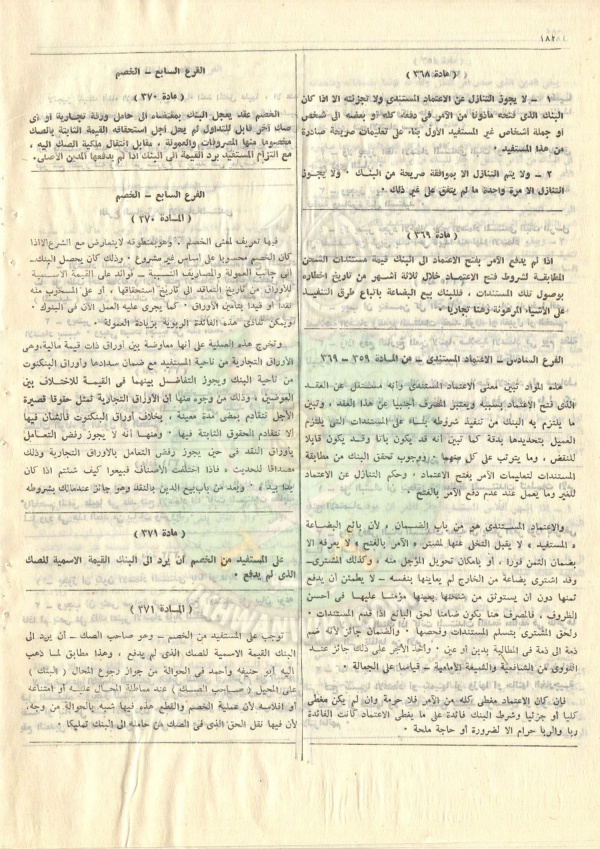 ١٨٢
( مادة ٣٦٨ )
١ - لا يجوز التنازل عن الاعتماد المستندى ولا تجزئته الا اذا كان
البنك الذى فتحه مأذونا من الآمر فى دفعه كله أو بعضه الى شخص
أو جملة أشخاص غير المستفيد الأول بناء على تعليمات صريحة صادرة
من هذا المستفيد ٠
٢ - ولا يتم التنازل الا بموافقة صريحة من البنك ٠ ولا يجوز
التنازل الا مرة واحدة ما لم يتفق على غير ذلك ٠
( مادة ٣٦٩ )
اذا لم يدفع الآمر بفتح الاعتماد الى البنك قيمة مستندات الشحن
المطابقة لشروط فتح الاعتماد خلال ثلاثة أشهر من تاريخ اخطاره
بوصول تلك المستندات ، فللبنك بيع البضاعة باتباع طرق التنفيذ
على الأشياء المرهونة رهنا تجاريا ٠
الفرع السادس - الاعتماد المستندى - من المادة ٣٥٩ - ٣٦٩
هذه المواد تبين معنى الاعتماد المستندى وأنه مستقل عن العقد
الذى فتح الاعتماد بسببه ويعتبر المصرف أجنبيا عن هذا العقد ، وتبين
ما يلتزم به البنك من تنفيذ شروطه بناء على المستندات التى يلتزم
العميل بتحديدها بدقة كما تبين أنه قد يكون باتا وقد يكون قابلا
للنقض ، وما يترتب على كل منهما ٠ ووجوب تحقق البنك من مطابقة
المستندات لتعليمات الآمر بفتح الاعتماد ، وحكم التنازل عن الاعتماد
للغير وما يعمل عند عدم دفع الآمر بالفتح ٠
والاعتماد المستندى هو من باب الضمان ، لأن بائع البضاعة
« المستفيد » لا يقبل التخلى عنها لمشتر « الآمر بالفتح » لا يعرفه الا
بضمان الثمن فورا ، أو بامكان تحويل المؤجل منه ، وكذلك المشترى -
وقد اشترى بضاعة من الخارج لم يعاينها بنفسه - لا يطمئن أن يدفع
ثمنها دون أن يستوثق من شحنها بعينها مؤمنا عليها فى أحسن
الظروف ، فالمصرف هنا يكون ضامنا لحق البائع اذا قدم المستندات ٠
ولحق المشترى بتسلم المستندات وفحصها ٠ والضمان جائز لأنه ضم
ذمة الى ذمة فى المطالبة بدين أو عين ٠ وأخذ الأجر على ذلك جائز عند
الفوزى من الشافعية والشيعة الامامية - قياسا على الجعالة ٠
فان كان الاعتماد مغطى كله من الآمر فلا حرمة وان لم يكن مغطى
كليا أو جزئيا وشرط البنك فائدة على ما يغطى الاعتماد كانت الفائدة
ربا والربا حرام الا لضرورة أو حاجة ملحة ٠
الفرع السابع - الخصم
( مادة ٣٧٠ )
الخصم عقد يعجل البنك بمقتضاه الى حامل ورقة تجارية أو أى
صك آخر قابل للتداول لم يحل أجل استحقاقه القيمة الثابتة بالصك
مخصوما منها المصروفات والعمولة ، مقابل انتقال ملكية الصك اليه ،
مع التزام المستفيد برد القيمة الى البنك اذا لم يدفعها المدين الأصلى ٠
الفرع السابع - الخصم
( المادة ٣٧٠ )
فيها تعريف لمعنى الخصم ٠ وهو بمنطوقه لا يتعارض مع الشرع الا اذا
كان الخصم محسوبا على أساس غير مشروع ٠ وذلك كأن يحصل البنك -
الى جانب العمولة والمصاريف النسبية - فوائد على القيمة الاسمية
للأوراق من تاريخ التعاقد الى تاريخ استحقاقها ، أو على المسحوب منه
نقدا أو قيدا بتأمين الأوراق ٠ كما يجرى عليه العمل الآن فى البنوك ٠
ويمكن تفادى هذه الفائدة الربوية بزيادة العمولة ٠
وتخرج هذه العملية على أنها معاوضة بين أوراق ذات قيمة مالية، وهى
الأوراق التجارية من ناحية المستفيد مع ضمان سدادها وأوراق البنكنوت
من ناحية البنك ويجوز التفاضل بينهما فى القيمة للاختلاف بين
العوضين ، وذلك من وجوه منها أن الأوراق التجارية تمثل حقوقا قصيرة
الأجل تتقادم بمضى مدة معينة ، بخلاف أوراق البنكنوت فالشأن فيها
ألا تتقادم الحقوق الثابتة فيها ٠ ومنها أنه لا يجوز رفض التعامل
بأوراق النقد فى حين يجوز رفض التعامل بالأوراق التجارية وذلك
مصداقا للحديث ، فاذا اختلفت الأصناف فبيعوا كيف شئتم اذا كان
يدا بيد ، ويعد من باب بيع الدين بالنقد وهو جائز عند مالك بشروطه
( مادة ٣٧١ )
على المستفيد من الخصم أن يرد الى البنك القيمة الاسمية للصك
الذى لم يدفع ٠
( المادة ٣٧١ )
توجب على المستفيد من الخصم - وهو صاحب الصك - أن يرد الى
البنك القيمة الاسمية للصك الذى لم يدفع ، وهذا مطابق لما ذهب
اليه أبو حنيفة وأحمد فى الحوالة من جواز رجوع المحال ( البنك )
على المحيل ( صاحب الصك ) عند مماطلة المحال عليه أو امتناعه
أو افلاسه لأن عملية الخصم والقطع هذه فيها شبه بالحوالة من وجه،
لأن فيها نقل الحق الذى فى الصك من حامله الى البنك تمليكا ٠